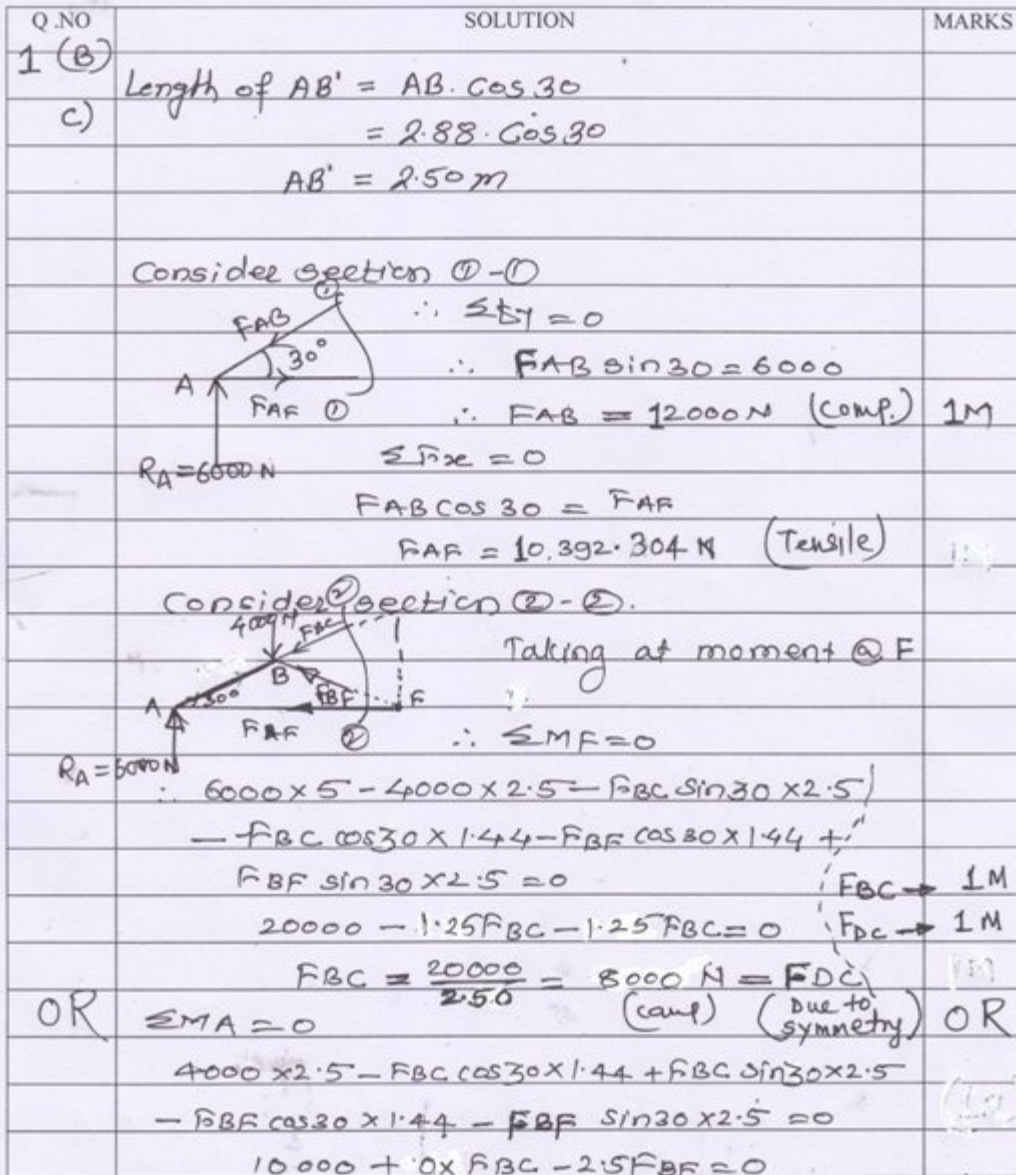 Q.NO SOLUTION MARKS
1 (B)
Length of AB' = AB. Cos 30
c)
= 2.88. Cos 30
AB' = 2.50 m
Consider section ①-①
①
FAB
∴ Σfy = 0
30°
∴ FAB sin 30 = 6000
A
FAF ①
∴ FAB = 12000 N (comp.) 1M
RA = 6000 N
ΣFx = 0
FAB cos 30 = FAF
FAF = 10,392.304 N (Tensile)
Consider section ②-②.
②
4000N
FBC
Taking at moment @ F
B
A 30° FBF F
FAF ②
∴ ΣMF = 0
RA = 6000 N
∴ 6000 × 5 - 4000 × 2.5 - FBC sin 30 × 2.5
- FBC cos 30 × 1.44 - FBF cos 30 × 1.44 +
FBF sin 30 × 2.5 = 0
FBC → 1M
20000 - 1.25 FBC - 1.25 FBC = 0 FDC → 1M
FBC = 20000/2.50 = 8000 N = FDC
(comp) (Due to symmetry)
OR ΣMA = 0 OR
4000 × 2.5 - FBC cos 30 × 1.44 + FBC sin 30 × 2.5
- FBF cos 30 × 1.44 - FBF sin 30 × 2.5 = 0
10000 + 0 × FBC - 2.5 FBF = 0